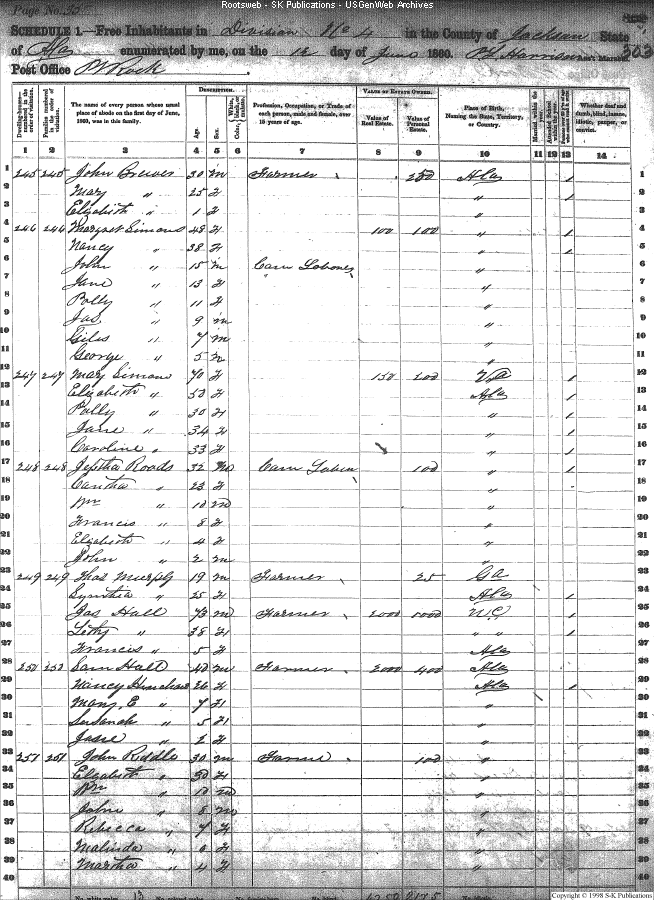 Rootsweb - SK Publications - USGenWeb Archives
Page No.
SCHEDULE 1.—Free Inhabitants in Division No 4 in the County of Jackson State
of Ala enumerated by me, on the 12 day of June 1860. 303
Post Office
DESCRIPTION. VALUE OF ESTATE OWNED.
Dwelling-houses— numbered in the order of visitation.
Families numbered in the order of visitation.
The name of every person whose usual place of abode on the first day of June, 1860, was in this family.
Age. Sex.
Profession, Occupation, or Trade of each person, male and female, over 15 years of age.
Value of Real Estate. Value of Personal Estate.
Place of Birth, Naming the State, Territory, or Country.
Married within the year.
Whether deaf and dumb, blind, insane, idiotic, pauper, or convict.
1 2 3 4 5 6 7 8 9 10 11 12 13 14
1 245 245 John Brewer 30 m Farmer 250 Ala / 1
2 Mary " 25 f " / 2
3 Elizabeth " 1 f " 3
4 246 246 Margaret Simons 48 f 100 100 " / 4
5 Nancy " 38 f " / 5
6 John " 15 m " 6
7 Jane " 13 f " 7
8 Polly " 11 f " 8
9 Jas " 9 m " 9
10 Giles " 7 m " 10
11 George " 5 m " 11
12 247 247 Mary Simons 70 f 150 200 Va / 12
13 Elizabeth " 50 f Ala / 13
14 Polly " 30 f " / 14
15 Jane " 34 f " / 15
16 Caroline " 33 f " / 16
17 248 248 Jeptha Roads 32 m 100 " / 17
18 23 f " 18
19 Wm " 10 m " 19
20 Francis " 8 f " 20
21 Elizabeth " 4 f " 21
22 John " 2 m " 22
23 249 249 Thos Murphy 19 m Farmer 25 Ga 23
24 Synthia " 25 f Ala / 24
25 Jas Hall 73 m Farmer 2000 N.C. / 25
26 38 f " " / 26
27 Francis " 5 f Ala 27
28 Sam Hall 40 m Farmer 2000 400 Ala 28
29 Nancy 26 f Ala / 29
30 Mary E " 7 f " 30
31 Susanah " 5 f " 31
32 " f " 32
33 251 251 John Riddle 30 m Farmer 100 " 33
34 Elizabeth " 30 f " 34
35 Wm " 10 m " 35
36 John " 8 m " 36
37 Rebecca " 7 f " 37
38 Malinda " 6 f " 38
39 Martha " 4 f " 39
40 40
Copyright © 1998 S-K Publications